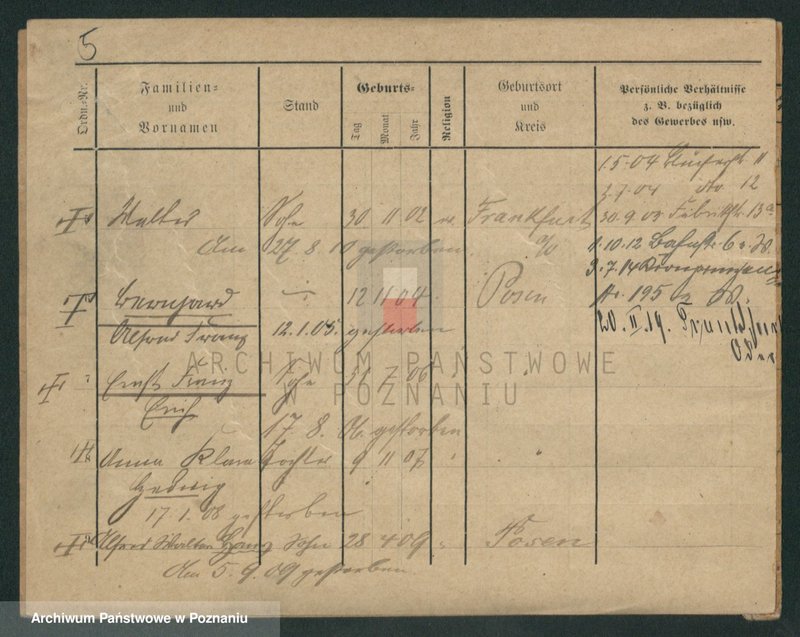 5
Ordn.-Nr.
Familien-
und
Vornamen
Stand
Geburts-
Tag
Monat
Jahr
Religion
Geburtsort
und
Kreis
Persönliche Verhältnisse
z. B. bezüglich
des Gewerbes usw.
1.5.04 11
3.7.04 do 12
Walter Sohn 30 11 02 Frankfurt 30.9.08
Am 27.8.10 gestorben a/O 1.10.12 Bahnstr. 6
3.7.14
Bernhard 12 11 04 Posen Nr. 195
Alfred Franz 12.1.05. gestorben 20.II.19. Frankfurt
Oder
ARCHIWUM PAŃSTWOWE
W POZNANIU
Ernst Franz Sohn 31 7 06
Erich
17.8.06. gestorben
Anna Klara Tochter 9 11 07
Hedwig
17.1.08 gestorben
Alfred Walter Hans Sohn 28 4 09 Posen
Am 5.9.09 gestorben
Archiwum Państwowe w Poznaniu